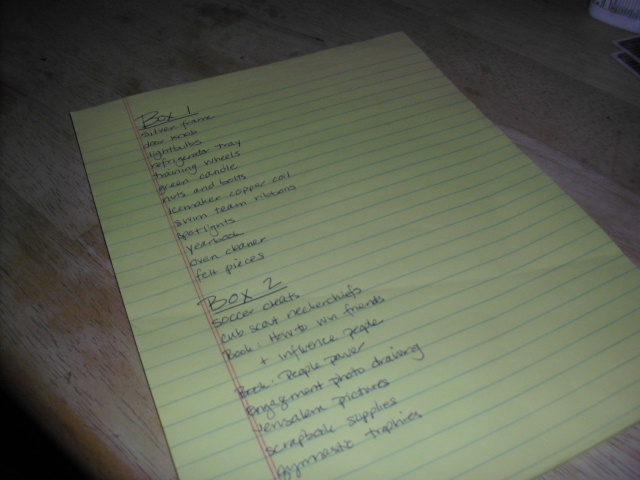 Box 1
silver frame
door knob
lightbulbs
refrigerator tray
training wheels
green candle
nuts and bolts
icemaker copper coil
swim team ribbons
spotlights
yearbook
oven cleaner
felt pieces
Box 2
soccer cleats
cub scout neckerchiefs
Book: How to win friends
+ influence people
Book: People power
engagement photo drawing
Jerusalem pictures
scrapbook supplies
gymnastic trophies